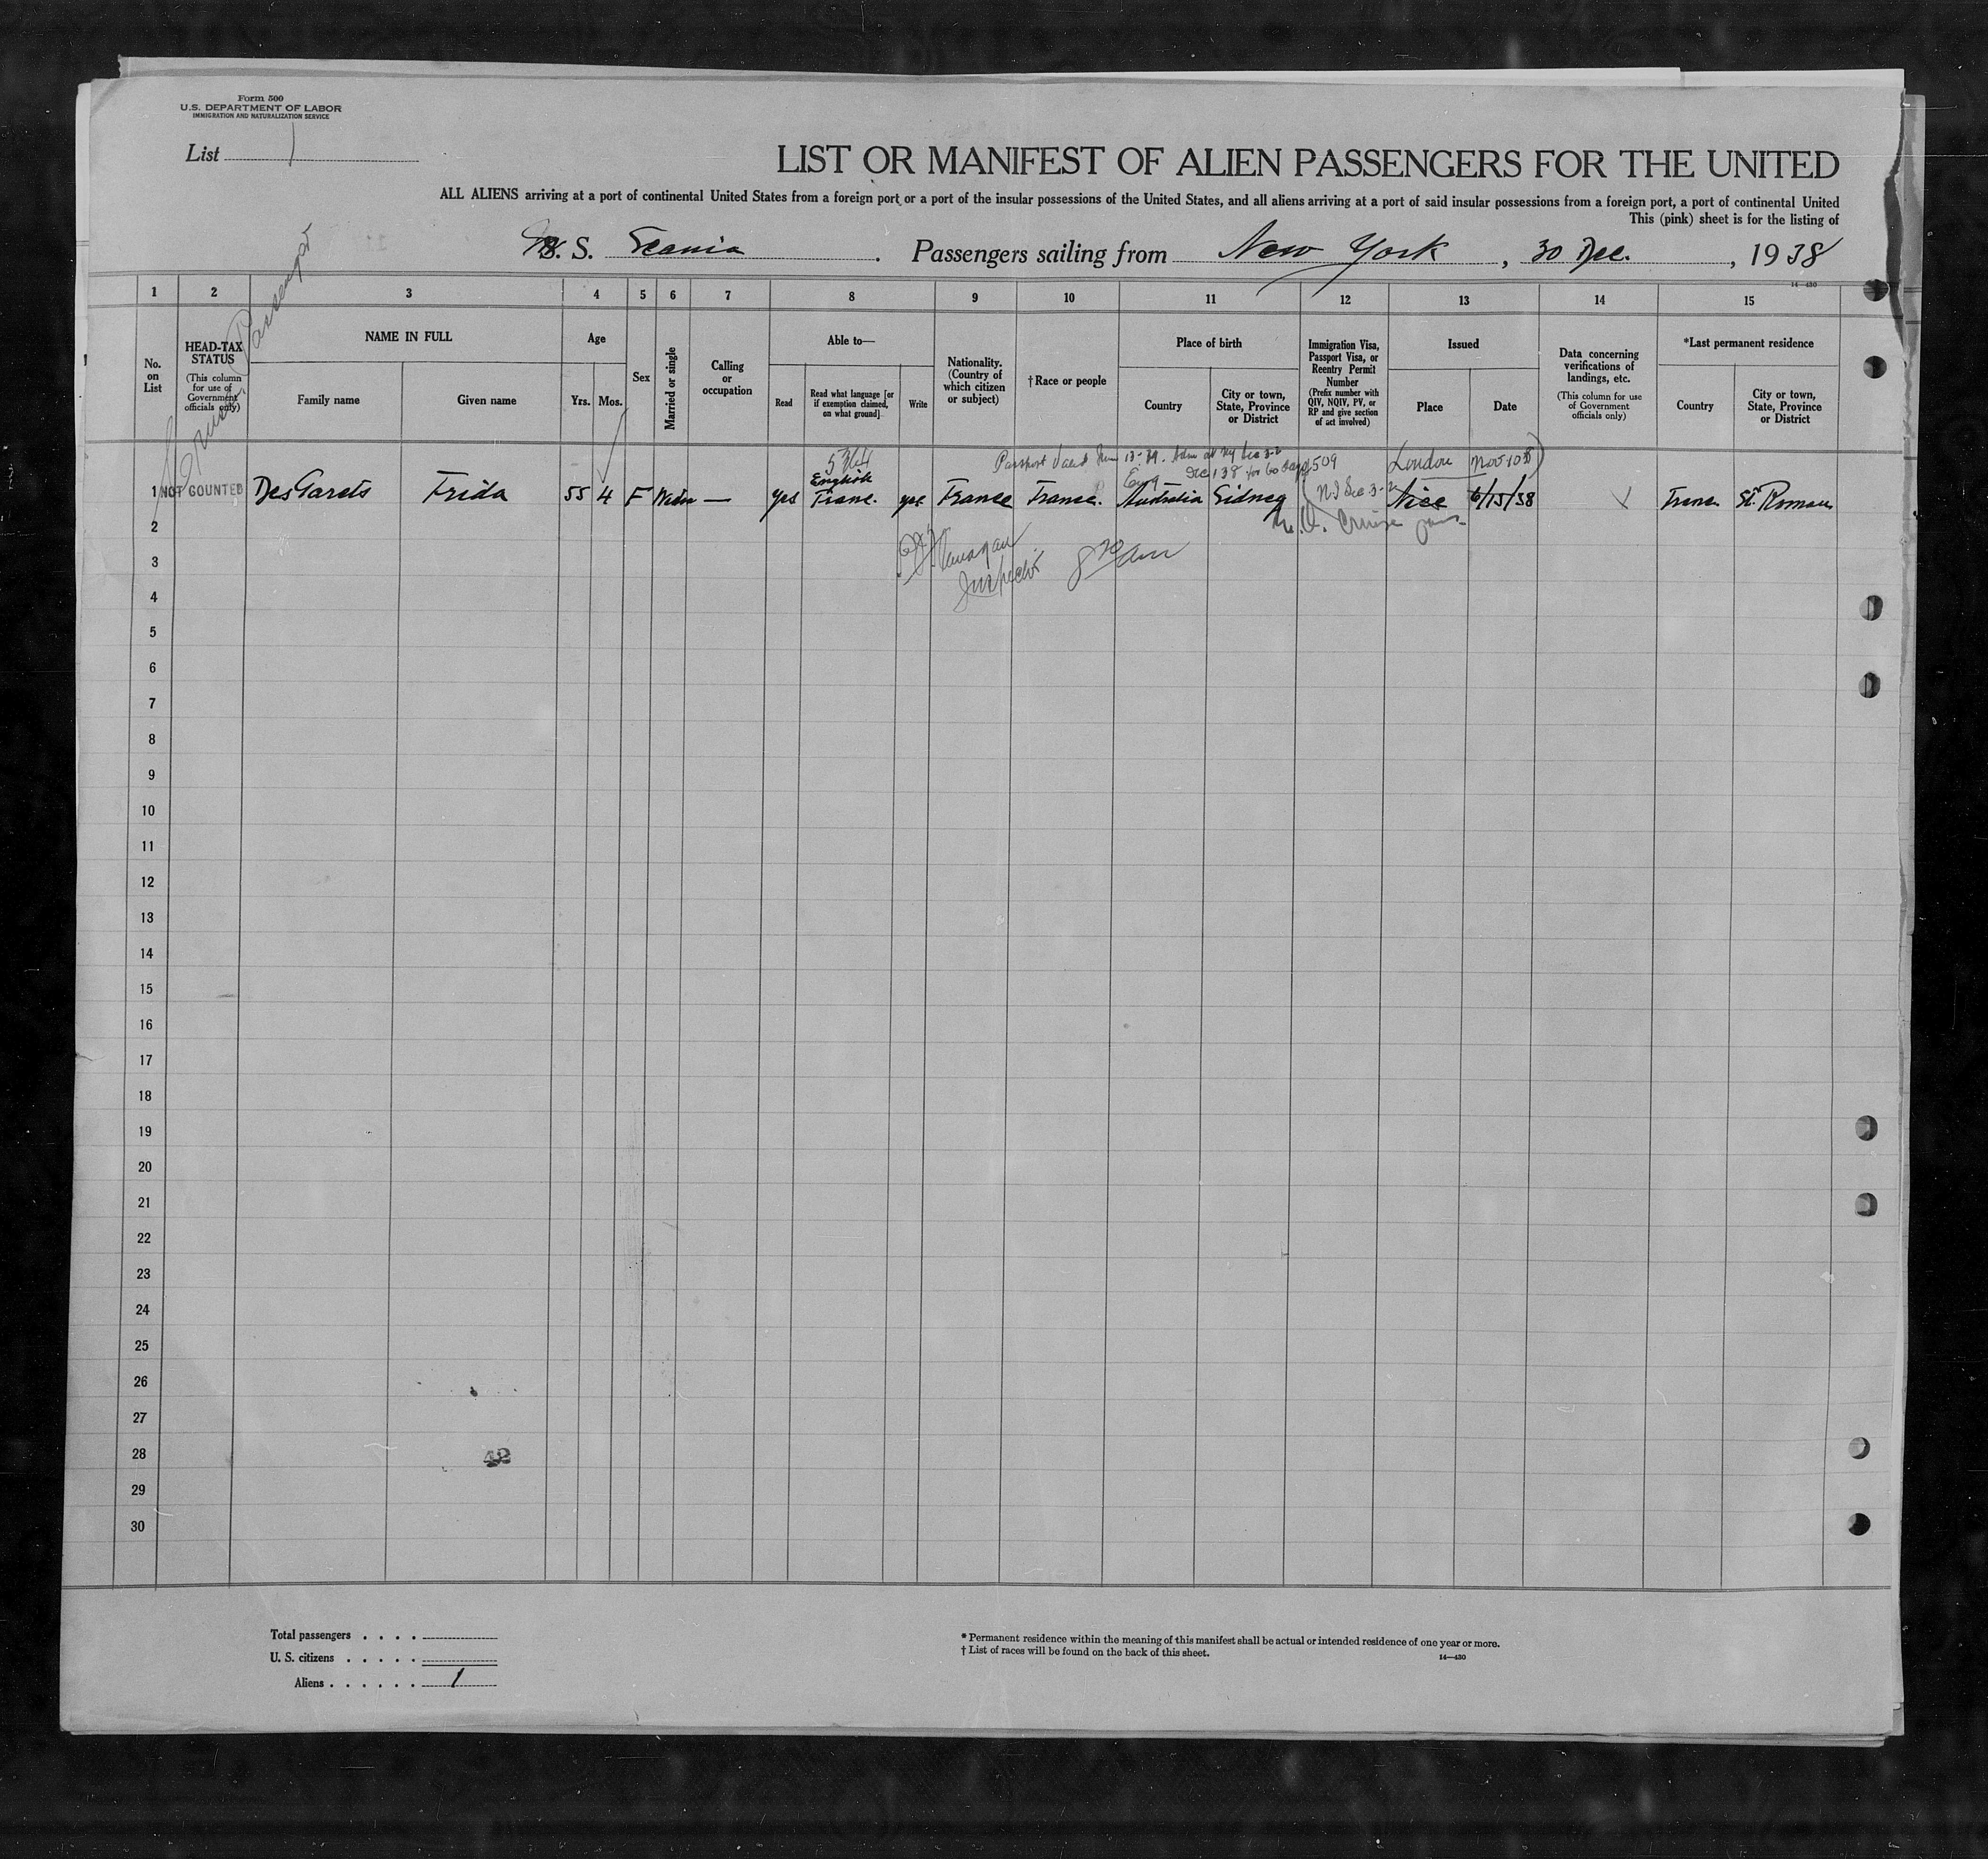 Form 500
U.S. DEPARTMENT OF LABOR
IMMIGRATION AND NATURALIZATION SERVICE
List 1
LIST OR MANIFEST OF ALIEN PASSENGERS FOR THE UNITED
ALL ALIENS arriving at a port of continental United States from a foreign port or a port of the insular possessions of the United States, and all aliens arriving at a port of said insular possessions from a foreign port, a port of continental United
This (pink) sheet is for the listing of
S. Scania. Passengers sailing from New York, 30 Dec., 1938
14—430
1 2 3 4 5 6 7 8 9 10 11 12 13 14 15
No. on List
HEAD-TAX STATUS
(This column for use of Government officials only)
Passenger
NAME IN FULL
Family name
Given name
Age
Yrs.
Mos.
Sex
Married or single
Calling or occupation
Able to—
Read
Read what language [or if exemption claimed, on what ground]
Write
Nationality. (Country of which citizen or subject)
†Race or people
Place of birth
Country
City or town, State, Province or District
Immigration Visa, Passport Visa, or Reentry Permit Number
(Prefix number with QIV, NQIV, PV, or RP and give section of act involved)
Issued
Place
Date
Data concerning verifications of landings, etc.
(This column for use of Government officials only)
*Last permanent residence
Country
City or town, State, Province or District
Passport Valid 13-39. Adm at NY Sec 3-2
Dec 1 38 for 60 days
5364
English
Eng
509
London Nov 10
1 NOT COUNTED DesGarets Frida 55 4 F — yes Franc. yes France France. Australia Sidney N.I Sec 3-2 Nice 6/15/38 St. Roman
Cruise
2
Inspector
3
4
5
6
7
8
9
10
11
12
13
14
15
16
17
18
19
20
21
22
23
24
25
26
27
28
29
30
Total passengers . . . .
U. S. citizens . . . . .
Aliens . . . . . . 1
* Permanent residence within the meaning of this manifest shall be actual or intended residence of one year or more.
† List of races will be found on the back of this sheet.
14—430